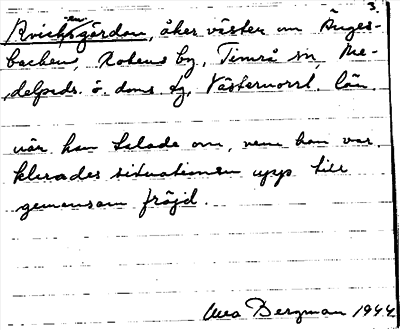 3.
Kvick gården, åker väster om Änges-
backen, by, Timrå sn, Me-
delpads ö. doms. tg, Västernorrl. län.
när han talade om, vem han var,
klarades situationen upp till
gemensam fröjd.
Bergman 1944